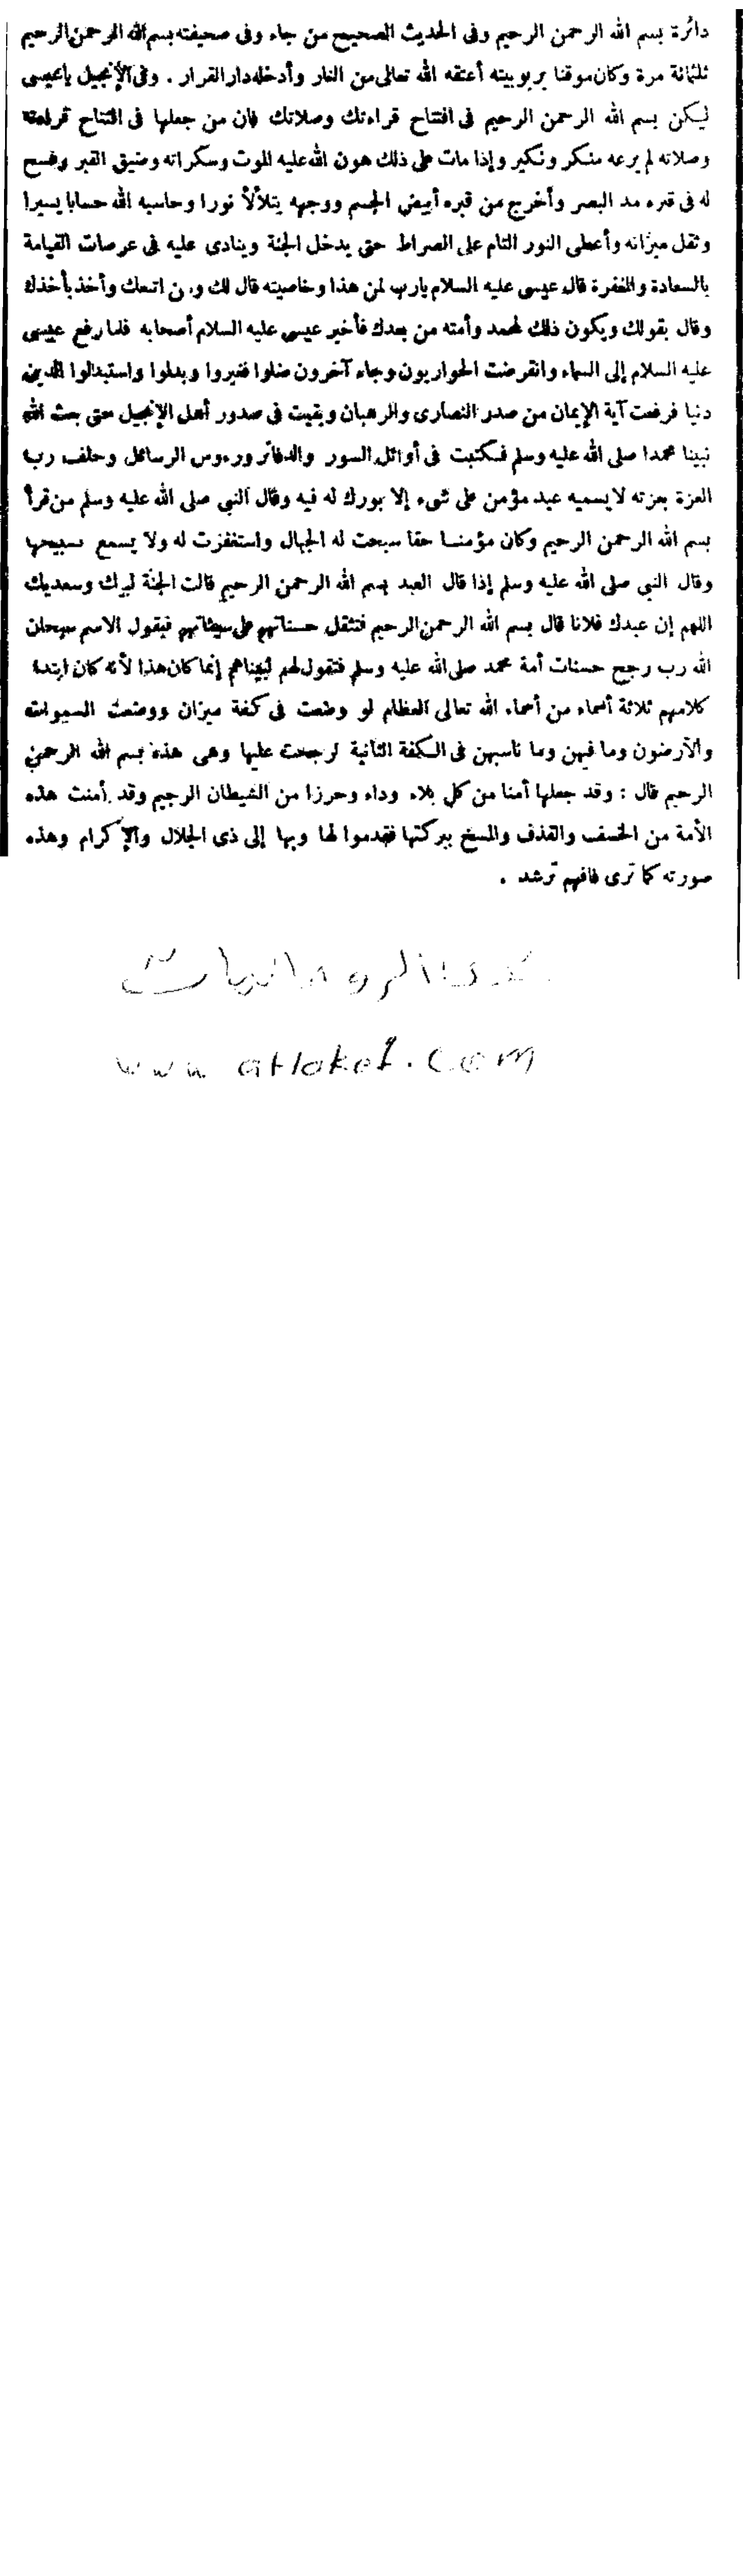 دائرة بسم الله الرحمن الرحيم وفى الحديث الصحيح من جاء وفى صحيفته بسم الله الرحمن الرحيم
ثلثمائة مرة وكان موقنا بربوبيته أعتقه الله تعالى من النار وأدخله دار القرار . وفى الإنجيل ياعيسى
ليكن بسم الله الرحمن الرحيم فى افتتاح قراءتك وصلاتك فان من جعلها فى افتتاح قراءته
وصلاته لم يرعه منكر ونكير وإذا مات على ذلك هون الله عليه الموت وسكراته وضيق القبر وفسح
له فى قبره مد البصر وأخرج من قبره أبيض الجسم ووجهه يتلألأ نورا وحاسبه الله حسابا يسيرا
وثقل ميزانه وأعطى النور التام على الصراط حتى يدخل الجنة وينادى عليه فى عرصات القيامة
بالسعادة والمغفرة قال عيسى عليه السلام يارب لمن هذا وخاصيته قال لك ومن اتبعك وأخذ بأخذك
وقال بقولك ويكون ذلك لمحمد وأمته من بعدك فأخبر عيسى عليه السلام أصحابه فلما رفع عيسى
عليه السلام إلى السماء وانقرضت الحواريون وجاء آخرون ضلوا فغيروا وبدلوا واستبدلوا بالدين
دنيا فرفعت آية الإيمان من صدر النصارى والرهبان وبقيت فى صدور أهل الإنجيل حتى بعث الله
نبينا محمدا صلى الله عليه وسلم فكتبت فى أوائل السور والدفاتر ورءوس الرسائل وحلف رب
العزة بعزته لايسميه عبد مؤمن على شىء إلا بورك له فيه وقال النبي صلى الله عليه وسلم من قرأ
بسم الله الرحمن الرحيم وكان مؤمنا حقا سبحت له الجبال واستغفرت له ولا يسمع تسبيحها
وقال النبي صلى الله عليه وسلم إذا قال العبد بسم الله الرحمن الرحيم قالت الجنة لبيك وسعديك
اللهم إن عبدك فلانا قال بسم الله الرحمن الرحيم فتثقل حسناتهم على سيئاتهم فيقول الاسم سبحان
الله رب رجح حسنات أمة محمد صلى الله عليه وسلم فتقول لهم إنما كان هذا لأنه كان ابتداء
كلامهم ثلاثة أسماء من أسماء الله تعالى العظام لو وضعت فى كفة ميزان ووضعت السموات
والأرضون وما فيهن وما ناسبهن فى الكفة الثانية لرجحت عليها وهى هذه بسم الله الرحمن
الرحيم قال : وقد جعلها أمنا من كل بلاء وداء وحرزا من الشيطان الرجيم وقد أمنت هذه
الأمة من الخسف والقذف والمسخ ببركتها فقدموا لها وبها إلى ذى الجلال والإكرام وهذه
صورته كما ترى فافهم ترشد .
الروحانيات
www atlakei.com